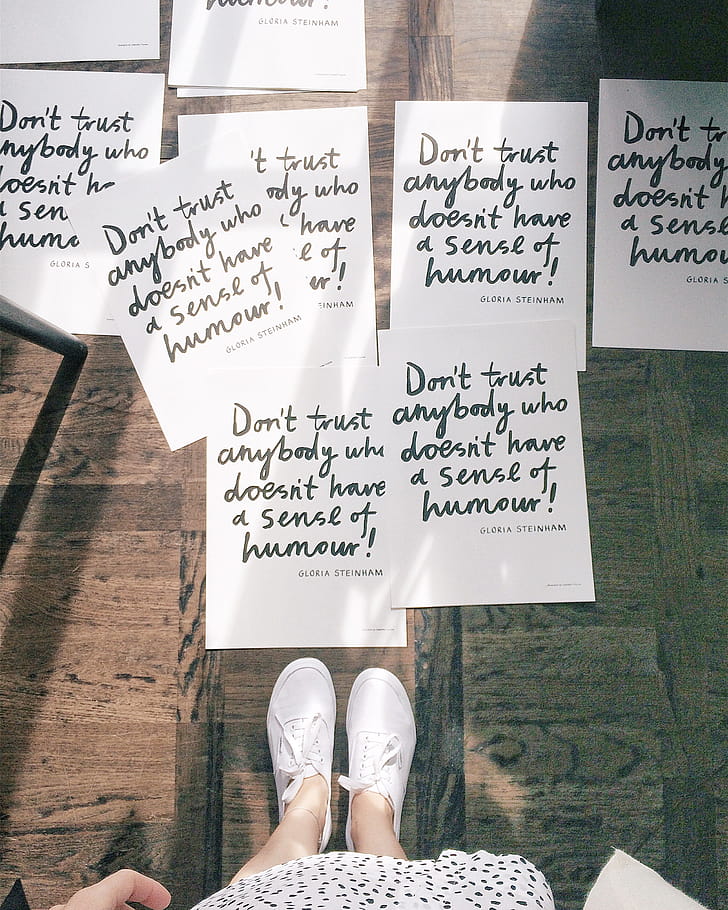 humour!
GLORIA STEINHAM
Don't trust
nybody who
oesn't h
sen
hum
GLORIA S
't trust
ody who
have
e of
er!
EINHAM
Don't trust
anybody who
doesn't have
a sense of
humour!
GLORIA STEINHAM
Don't trust
anybody who
doesn't have
a sense of
humour!
GLORIA STEINHAM
Don't tr
anybody
doesn't h
a sense
humou
GLORIA S
Don't trust
anybody who
doesn't have
a sense of
humour!
GLORIA STEINHAM
Don't trust
anybody who
doesn't have
a sense of
humour!
GLORIA STEINHAM